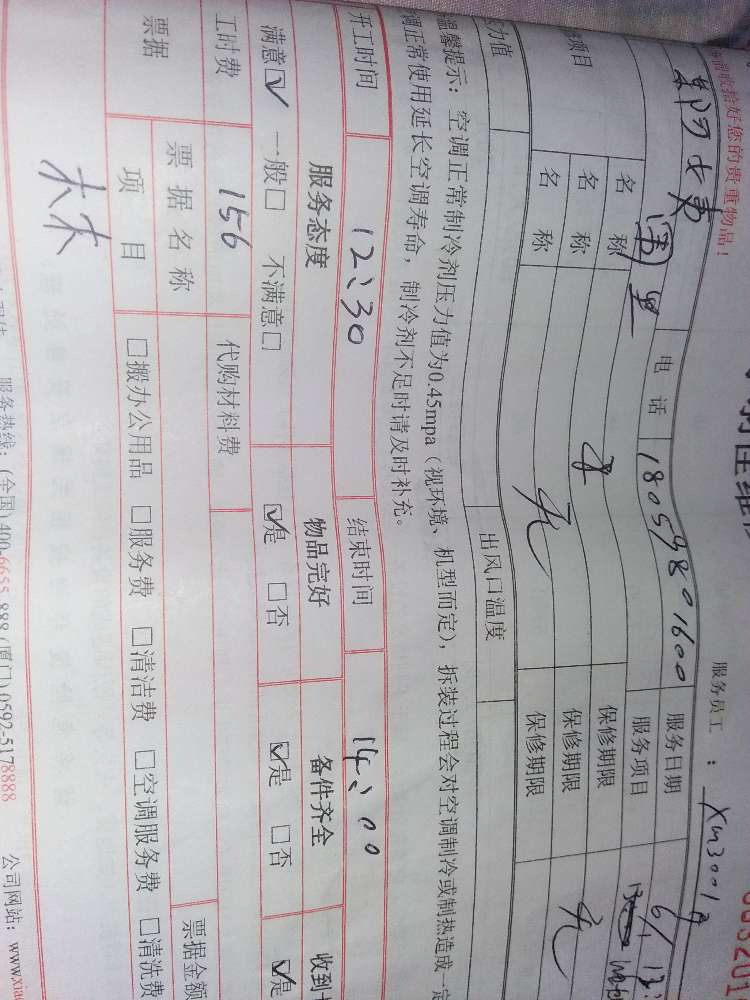 收拾好您的贵重物品！
服务员工：
电话 18059801600 服务日期 6/
服务项目
名称 保修期限
名称 无 保修期限
名称 无 保修期限 无
力值 出风口温度
温馨提示：空调正常制冷剂压力值为0.45mpa（视环境、机型而定），拆装过程会对空调制冷或制热造成一定
调正常使用延长空调寿命，制冷剂不足时请及时补充。
开工时间 12:30 结束时间 14:00
服务态度 物品完好 备件齐全 收到
满意☑ 一般□ 不满意□ ☑是 □否 ☑是 □否 ☑是
工时费 156 代购材料费
票据 票据名称 票据金额
项目 □搬办公用品 □服务费 □清洁费 □空调服务费 □清洗费
服务热线：(全国)400-6655-888 (厦门)0592-5178888 公司网站：www.xia